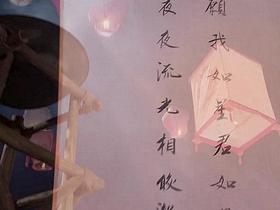 願我如星君如
夜夜流光相皎